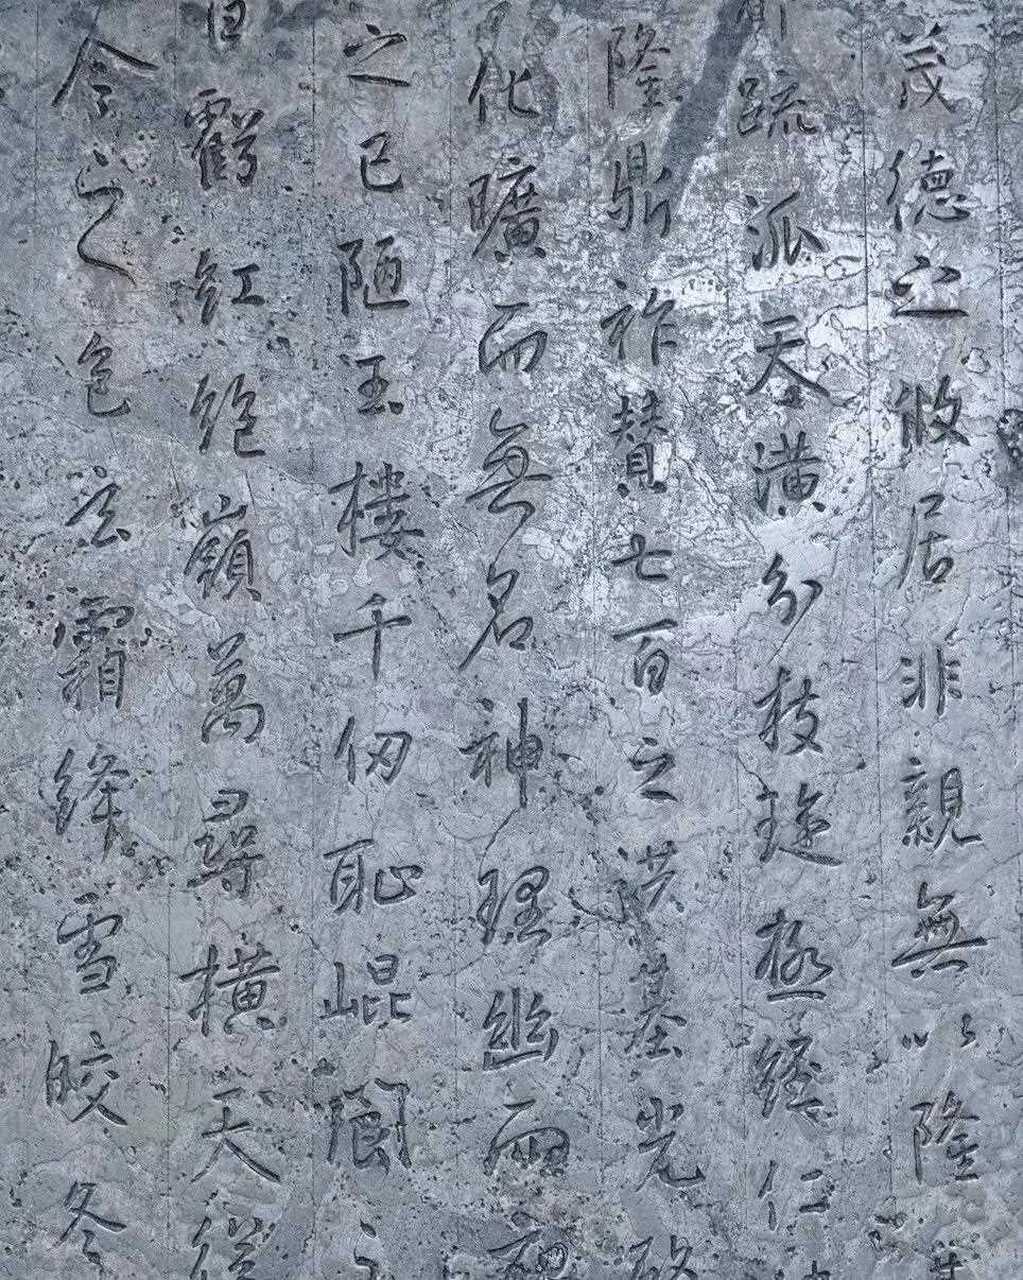 茂德之攸居非親無以隆
疏派天潢分枝璇極經仁
隆鼎祚贊七百之洪基光啟
化曠而無名神理幽而
之已陋玉樓千仞恥崐閬之
日虧紅絕嶺萬尋橫天
令之色玄霜絳雪皎冬